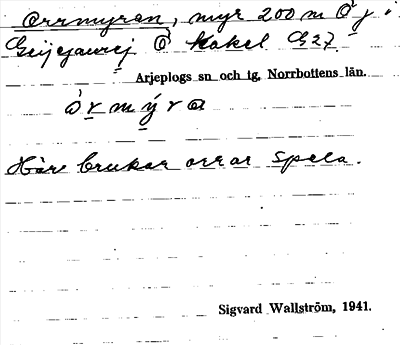 Orrmyran, myr 200 m Ö j i
Geijejaurej Ö Kakel G27
Arjeplogs sn och tg, Norrbottens län.
òr̲mýra
Här brukar orrar spela.
Sigvard Wallström, 1941.